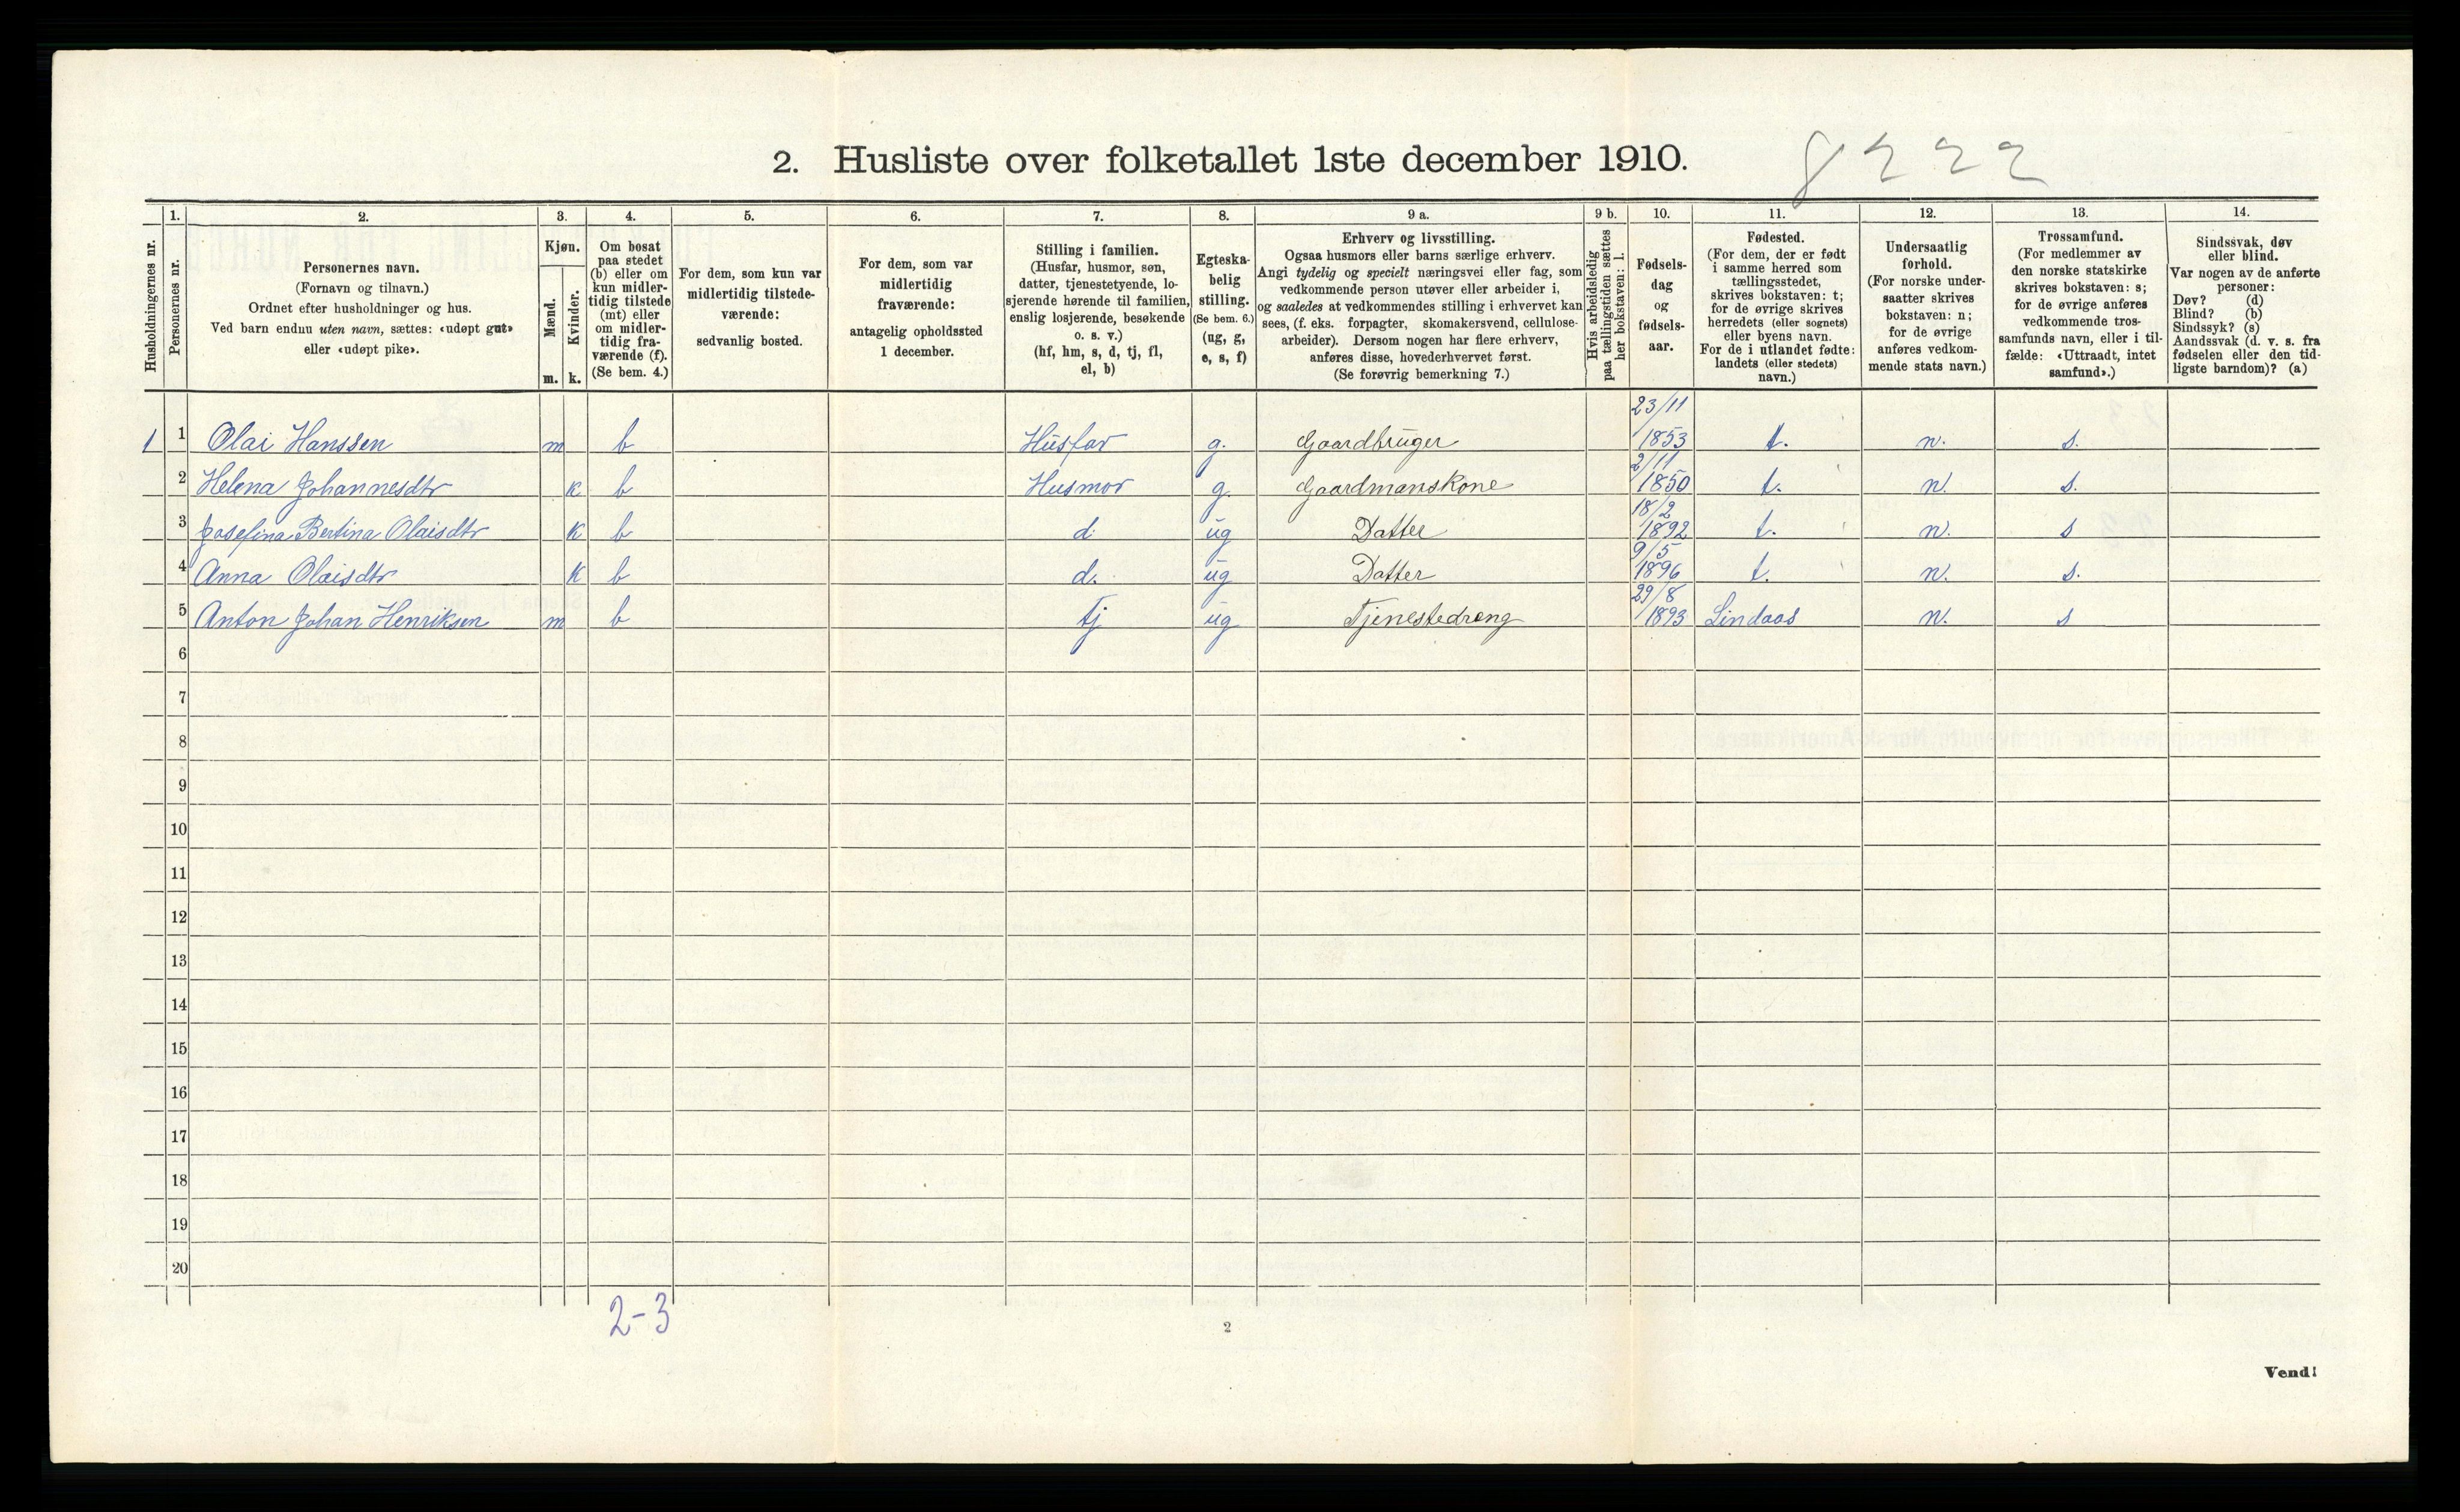 2. Husliste over folketallet 1ste december 1910. 8222
1. 2. 3. 4. 5. 6. 7. 8. 9 a. 9 b. 10. 11. 12. 13. 14.
Husholdningernes nr.
Personernes nr.
Personernes navn.
(Fornavn og tilnavn.)
Ordnet efter husholdninger og hus.
Ved barn endnu uten navn, sættes: «udøpt gut»
eller «udøpt pike».
Kjøn.
Mænd.
Kvinder.
m. k.
Om bosat
paa stedet
(b) eller om
kun midler-
tidig tilstede
(mt) eller
om midler-
tidig fra-
værende (f).
(Se bem. 4.)
For dem, som kun var
midlertidig tilstede-
værende:
sedvanlig bosted.
For dem, som var
midlertidig
fraværende:
antagelig opholdssted
1 december.
Stilling i familien.
(Husfar, husmor, søn,
datter, tjenestetyende, lo-
sjerende hørende til familien,
enslig losjerende, besøkende
o. s. v.)
(hf, hm, s, d, tj, fl,
el, b)
Egteska-
belig
stilling.
(Se bem. 6.)
(ug, g,
e, s, f)
Erhverv og livsstilling.
Ogsaa husmors eller barns særlige erhverv.
Angi tydelig og specielt næringsvei eller fag, som
vedkommende person utøver eller arbeider i,
og saaledes at vedkommendes stilling i erhvervet kan
sees, (f. eks. forpagter, skomakersvend, cellulose-
arbeider). Dersom nogen har flere erhverv,
anføres disse, hovederhvervet først.
(Se forøvrig bemerkning 7.)
Hvis arbeidsledig
paa tællingstiden sættes
her bokstaven: l.
Fødsels-
dag
og
fødsels-
aar.
Fødested.
(For dem, der er født
i samme herred som
tællingsstedet,
skrives bokstaven: t;
for de øvrige skrives
herredets (eller sognets)
eller byens navn.
For de i utlandet fødte:
landets (eller stedets)
navn.)
Undersaatlig
forhold.
(For norske under-
saatter skrives
bokstaven: n;
for de øvrige
anføres vedkom-
mende stats navn.)
Trossamfund.
(For medlemmer av
den norske statskirke
skrives bokstaven: s;
for de øvrige anføres
vedkommende tros-
samfunds navn, eller i til-
fælde: «Uttraadt, intet
samfund».)
Sindssvak, døv
eller blind.
Var nogen av de anførte
personer:
Døv? (d)
Blind? (b)
Sindssyk? (s)
Aandssvak (d. v. s. fra
fødselen eller den tid-
ligste barndom)? (a)
1 1 Olai Hanssen m b Husfar g. Gaardbruger 23/11 1853 t. n. s.
2 Helena Johannesdtr k b Husmor g. Gaardmanskone 2/11 1850 t. n. s.
3 Josefina Bertina Olaisdtr k b d. ug Datter 18/2 1892 t. n. s
4 Anna Olaisdtr k b d. ug Datter 9/5 1896 t. n. s.
5 Anton Johan Henriksen m b tj ug Tjenestedreng 29/8 1893 Lindaas n. s
6
7
8
9
10
11
12
13
14
15
16
17
18
19
20
2-3
2
Vend!